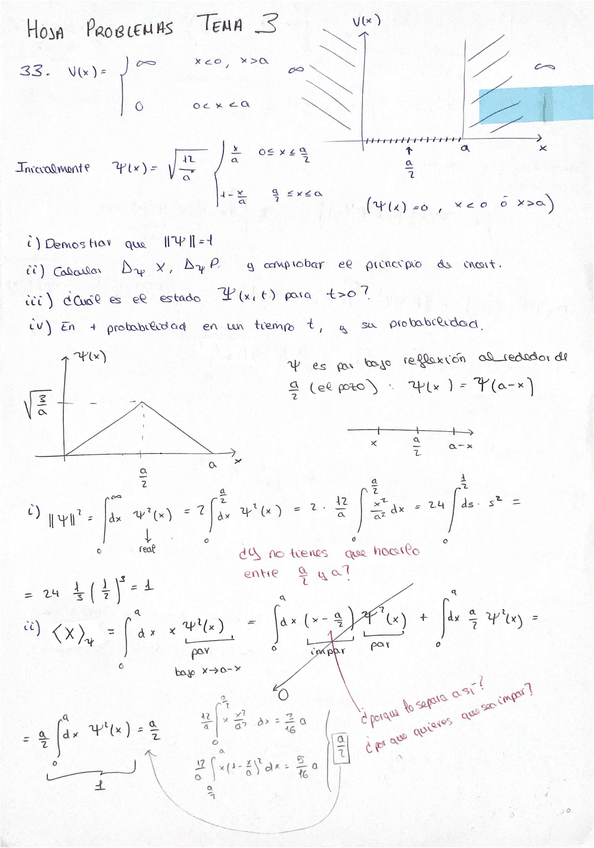 HOJA PROBLEMAS TEMA 3
33. V(x) = { ∞ x<0, x>a
0 0<x<a
V(x)
∞ ∞
a/2 a x
Inicialmente Ψ(x) = √(12/a) { x/a 0≤x≤a/2
1-x/a a/2≤x≤a
(Ψ(x)=0, x<0 ó x>a)
i) Demostrar que ||Ψ||=1
ii) Calcular Δ_Ψ X, Δ_Ψ P. y comprobar el principio de incert.
iii) ¿Cuál es el estado Ψ(x,t) para t>0?
iv) En + probabilidad en un tiempo t, y su probabilidad.
Ψ(x)
√(3/a)
a/2 a x
Ψ es par bajo reflexión alrededor de
a/2 (el pozo): Ψ(x) = Ψ(a-x)
x a/2 a-x
i) ||Ψ||² = ∫₀^∞ dx Ψ²(x) = 2∫₀^{a/2} dx Ψ²(x) = 2 · 12/a ∫₀^{a/2} x²/a² dx = 24 ∫₀^{1/2} ds · s² =
real
¿Y no tienes que hacerlo
entre a/2 y a?
= 24 1/3 (1/2)³ = 1
ii) ⟨X⟩_Ψ = ∫₀^a dx x Ψ²(x) = ∫₀^a dx (x - a/2) Ψ²(x) + ∫₀^a dx a/2 Ψ²(x) =
par
bajo x→a-x
impar par
0
¿porque lo separa así?
¿porque quieres que sea impar?
= a/2 ∫₀^a dx Ψ²(x) = a/2
1
12/a ∫₀^{a/2} x x²/a² dx = 3/16 a
12/a ∫_{a/2}^a x(1-x/a)² dx = 5/16 a
a/2